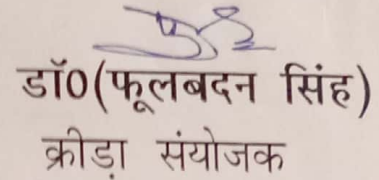 डॉ0(फूलबदन सिंह)
क्रीडा संयोजक